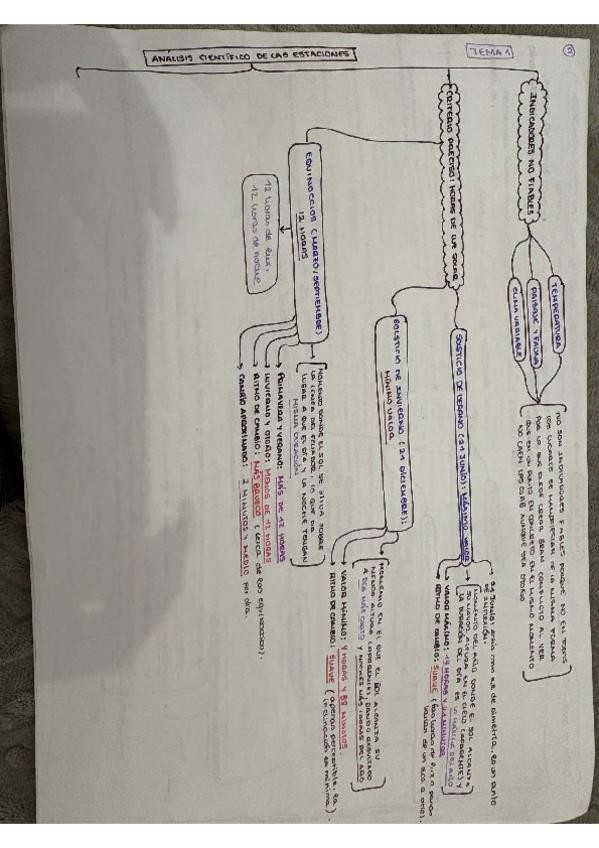 2
TEMA 1
ANÁLISIS CIENTÍFICO DE LAS ESTACIONES
INDICADORES NO FIABLES
TEMPERATURA
PAISAJE Y FAUNA
CLIMA VARIABLE
NO SON INDICADORES FIABLES PORQUE NO EN TODOS
LOS LUGARES SE MANIFIESTAN DE LA MISMA FORMA
POR LO QUE PUEDE CREAR GRAN CONFLICTO AL VER
QUE EN UN PUNTO EN CONCRETO EN EL MISMO MOMENTO
NO CAEN LAS HOJAS AUNQUE SEA OTOÑO
CRITERIO PRECISO: HORAS DE LUZ SOLAR
SOLSTICIO DE VERANO (21 JUNIO): MÁXIMO VALOR
21 JUNIO: es un punto
DE INFLEXIÓN.
MOMENTO DEL AÑO DONDE EL SOL ALCANZA
SU MAYOR ALTURA EN EL CIELO (APARENTE) Y
LA DURACIÓN DEL DÍA ES LA MÁXIMA DEL AÑO
VALOR MÁXIMO: HORAS Y MINUTOS
RITMO DE CAMBIO: SUAVE (las horas de luz apenas
varían de un día a otro).
SOLSTICIO DE INVIERNO (21 DICIEMBRE):
MÍNIMO VALOR
MOMENTO EN EL QUE EL SOL ALCANZA SU
MENOR ALTURA (APARENTE), DANDO RESULTADO
A DÍA MÁS CORTO Y NOCHES MÁS LARGAS DEL AÑO
VALOR MÍNIMO: 9 HORAS Y MINUTOS.
RITMO DE CAMBIO: SUAVE (apenas perceptible, la
inclinación es mínima).
EQUINOCCIOS (MARZO/SEPTIEMBRE)
12 HORAS
12 horas de luz,
12 horas de noche
MOMENTO DONDE EL SOL SE SITÚA SOBRE
LA LÍNEA DEL ECUADOR, LO QUE DA
LUGAR A QUE EL DÍA Y LA NOCHE TENGAN
MISMA DURACIÓN
PRIMAVERA Y VERANO: MÁS DE 12 HORAS
INVIERNO Y OTOÑO: MENOS DE 12 HORAS
RITMO DE CAMBIO: MÁS BRUSCO (cerca de los equinoccios).
CAMBIO APROXIMADO: 2 MINUTOS Y MEDIO por día.